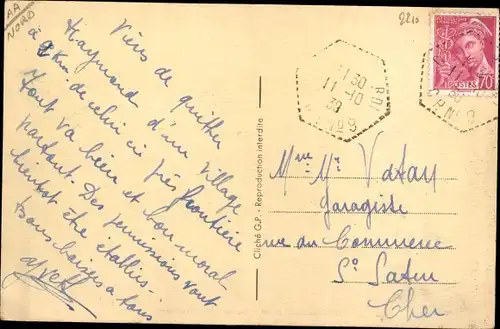 AA
NORD
2210
Viens de quitter
Raymond d'un village
à 2 km. de celui ci près frontière
Tout va bien et bon moral
partout. Des permissions vont
bientôt être établies.
Bons baisers a tous
Cliché G.P. - Reproduction interdite
11 30
11-10
39
Nº9
POSTES
70
Mme Mr Vatay
Garagiste
rue du Commerce
St Satur
Cher